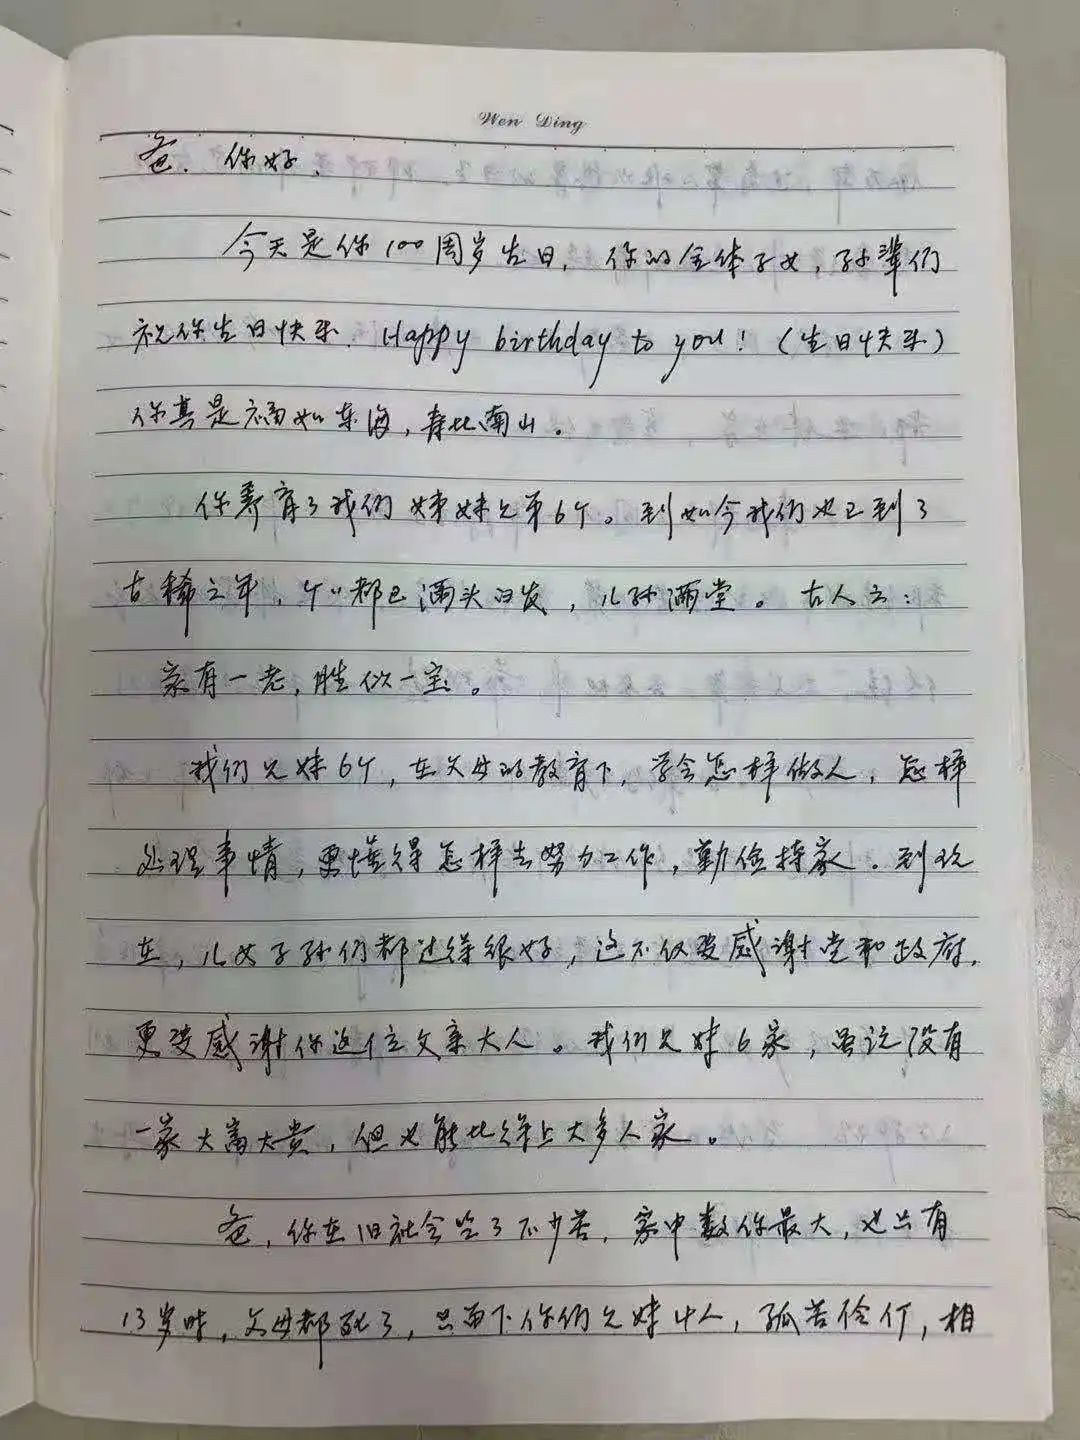 Wen Ding
爸、你好、
今天是你100周岁生日，你的全体子女，孙辈们
祝你生日快乐. Happy birthday to you!（生日快乐）
你真是福如东海，寿比南山。
你养育了我们姊妹兄弟6个。到如今我们也已到了
古稀之年，个个都已满头白发，儿孙满堂。古人云：
家有一老，胜似一宝。
我们兄妹6个，在父母的教育下，学会怎样做人，怎样
处理事情，更懂得怎样去努力工作，勤俭持家．到现
在，儿女子孙们都过得很好，这不仅要感谢党和政府，
更要感谢你这位父亲大人。我们兄妹6家，虽说没有
一家大富大贵，但也能比得上大多人家。
爸，你在旧社会吃了不少苦，家中数你最大，也只有
13岁时，父母都死了，只留下你们兄妹4人，孤苦伶仃，相